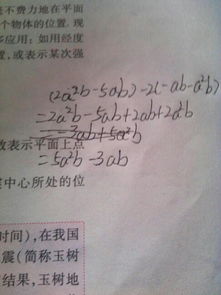 不费力地在平面
个物体的位置. 现
应用: 如用经度
置, 或表示某次强
(2a²b-5ab)-2(-ab-a²b)
=2a²b-5ab+2ab+2a²b
=-3ab+5a²b
敌表示平面上点
=5a²b-3ab
中心所处的位
时间), 在我国
震(简称玉树
结果, 玉树地